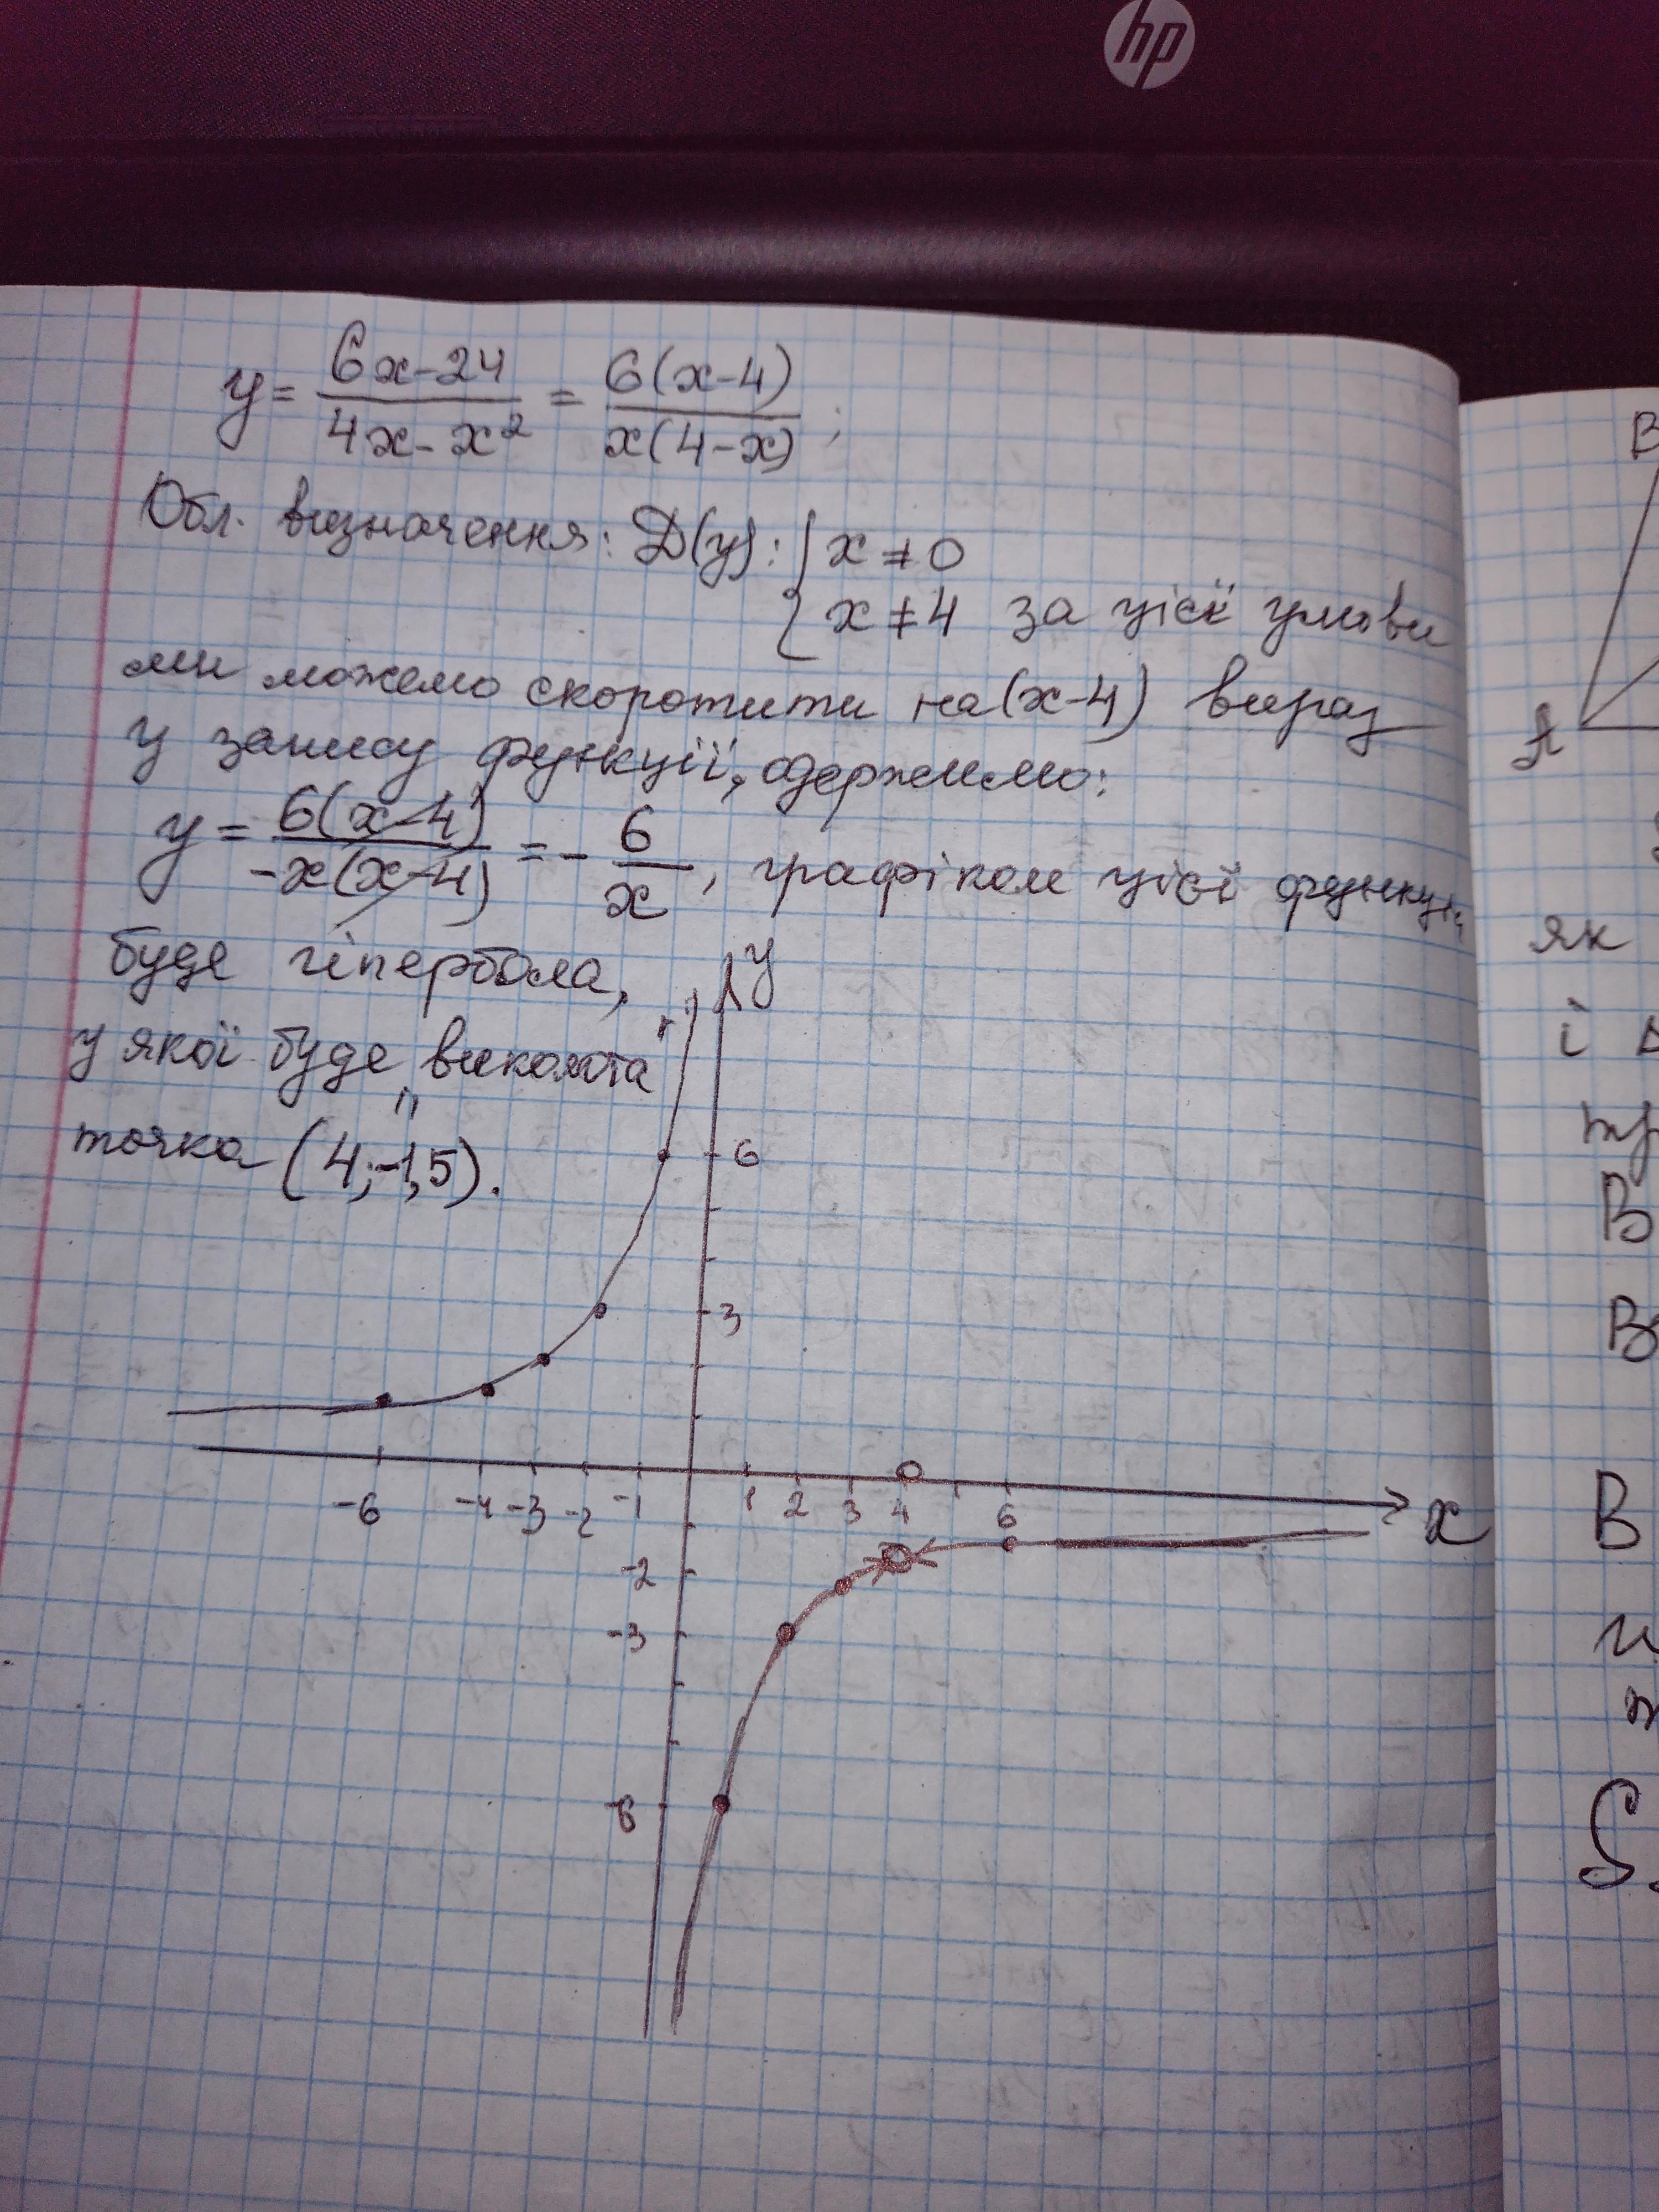 hp
y = 6x-24 / 4x-x² = 6(x-4) / x(4-x) ;
Обл. визначення: D(y): { x ≠ 0
x ≠ 4 за цієї умови
ми можемо скоротити на (x-4) вираз
у запису функції, одержимо:
y = 6(x-4) / -x(x-4) = - 6/x , графіком цієї функції
буде гіпербола,
у якої буде „виколота"
точка (4;-1,5).
y
6
3
-6 -4 -3 -2 -1 1 2 3 4 6
x
-2
-3
-6
B
A
як
і
В
В
В
S